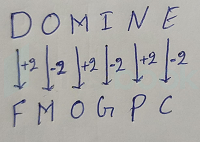 D O M I N E
+2 -2 +2 -2 +2 -2
F M O G P C